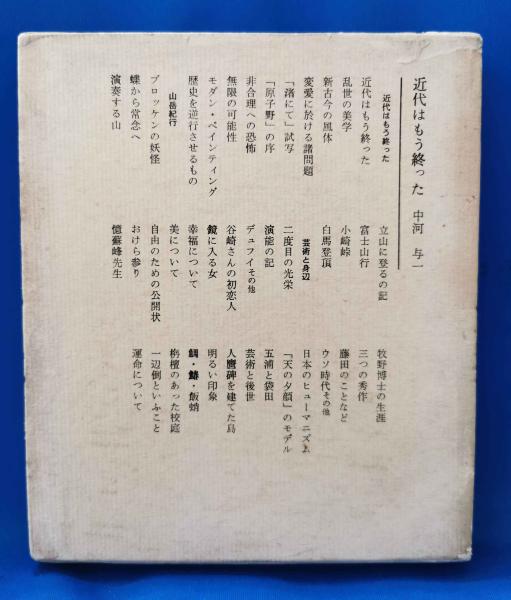 近代はもう終った 中河 与一
近代はもう終った
近代はもう終った
乱世の美学
新古今の風体
変愛に於ける諸問題
「渚にて」試写
「原子野」の序
非合理への恐怖
無限の可能性
モダン・ペインティング
歴史を逆行させるもの
山岳紀行
ブロッケンの妖怪
蝶から常念へ
演奏する山
立山に登るの記
富士山行
小崎峠
白馬登頂
芸術と身辺
二度目の光栄
演能の記
デュフイその他
谷崎さんの初恋人
鏡に入る女
幸福について
美について
自由のための公開状
おけら参り
憶蘇峰先生
牧野博士の生涯
三つの秀作
藤田のことなど
ウソ時代その他
日本のヒューマニズム
「天の夕顔」のモデル
五浦と袋田
芸術と後世
人麿碑を建てた島
明るい印象
鯛・鰆・飯蛸
栴檀のあった校庭
一辺倒といふこと
運命について